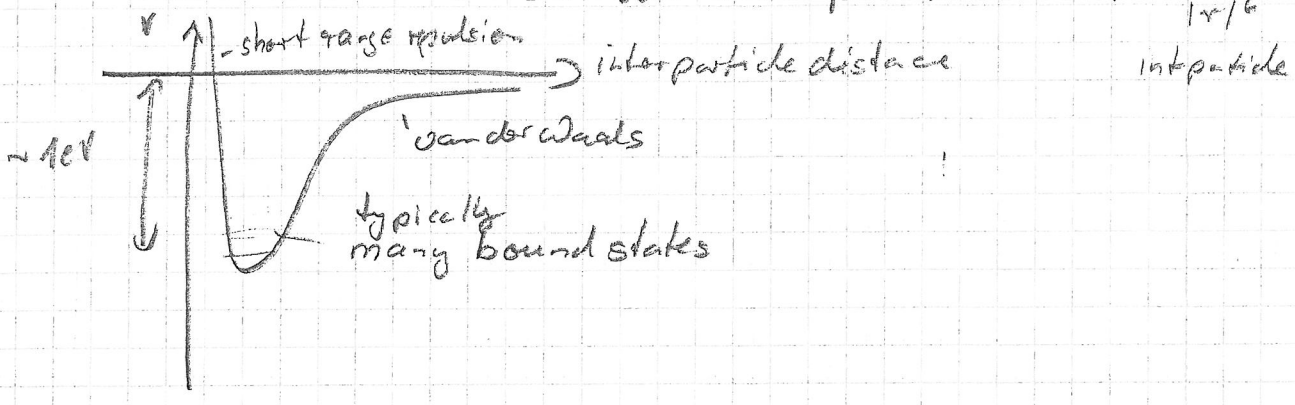 V
short range repulsion
interparticle distace
intpaticle
~ 1eV
van der Waals
typically
many bound states